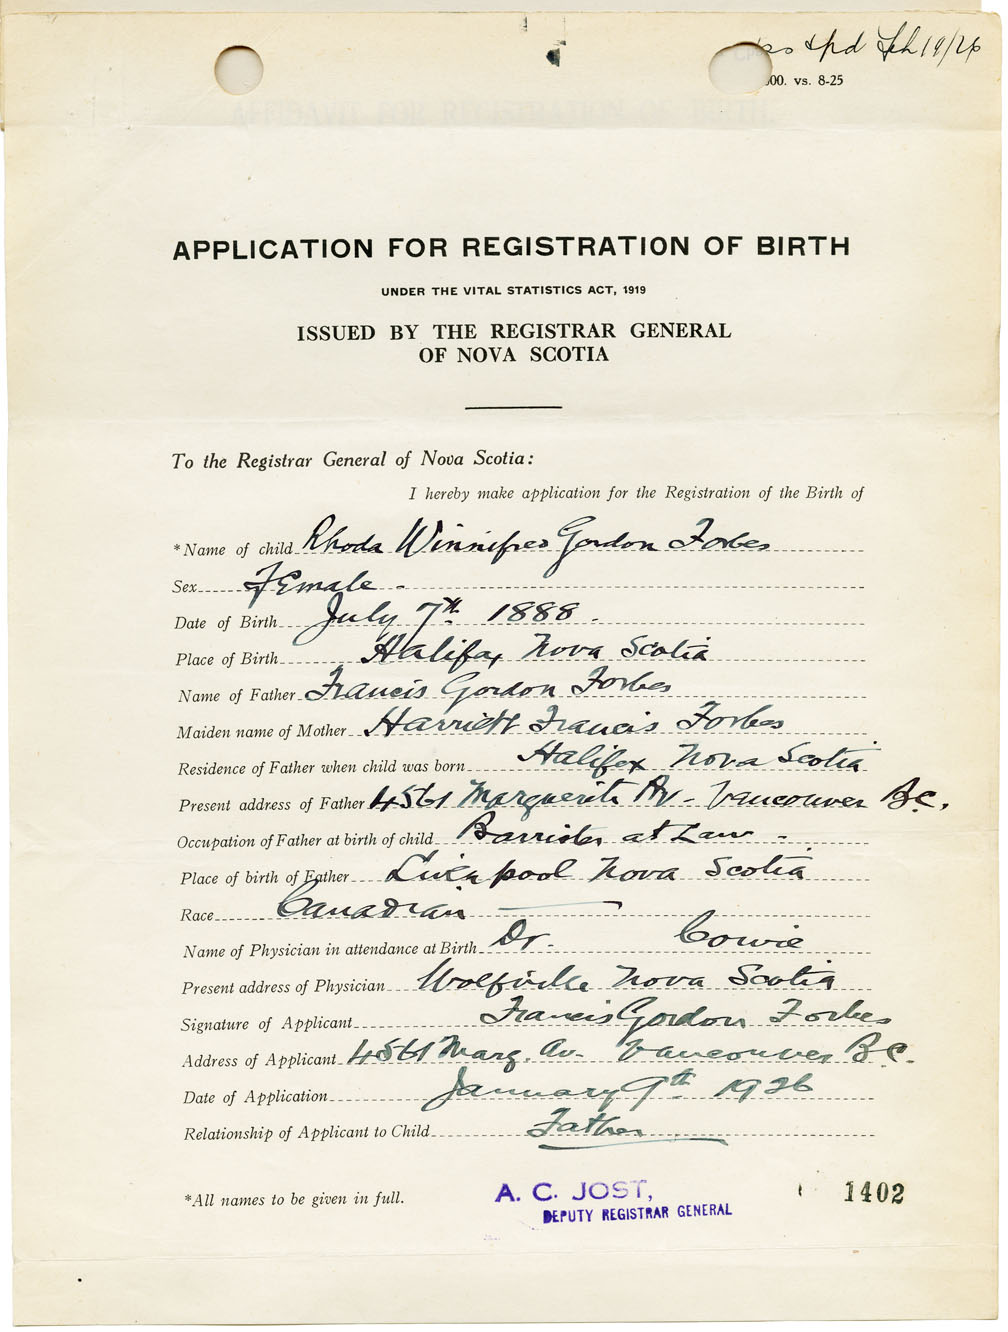 & pd Feb 19/26
00. vs. 8-25
APPLICATION FOR REGISTRATION OF BIRTH
UNDER THE VITAL STATISTICS ACT, 1919
ISSUED BY THE REGISTRAR GENERAL
OF NOVA SCOTIA
To the Registrar General of Nova Scotia:
I hereby make application for the Registration of the Birth of
*Name of child Rhoda Winnifred Gordon Forbes
Sex Female -
Date of Birth July 7th 1888.
Place of Birth Halifax Nova Scotia
Name of Father Francis Gordon Forbes
Maiden name of Mother Harriett Francis Forbes
Residence of Father when child was born Halifax Nova Scotia
Present address of Father 4561 Marguerite Av - Vancouver B.C.
Occupation of Father at birth of child Barrister at Law -
Place of birth of Father Liverpool Nova Scotia
Race Canadian
Name of Physician in attendance at Birth Dr. Cowie
Present address of Physician Wolfville Nova Scotia
Signature of Applicant Francis Gordon Forbes
Address of Applicant 4561 Marg. Av. Vancouver B.C.
Date of Application January 9th 1926
Relationship of Applicant to Child Father
*All names to be given in full.
A. C. JOST,
DEPUTY REGISTRAR GENERAL
1402